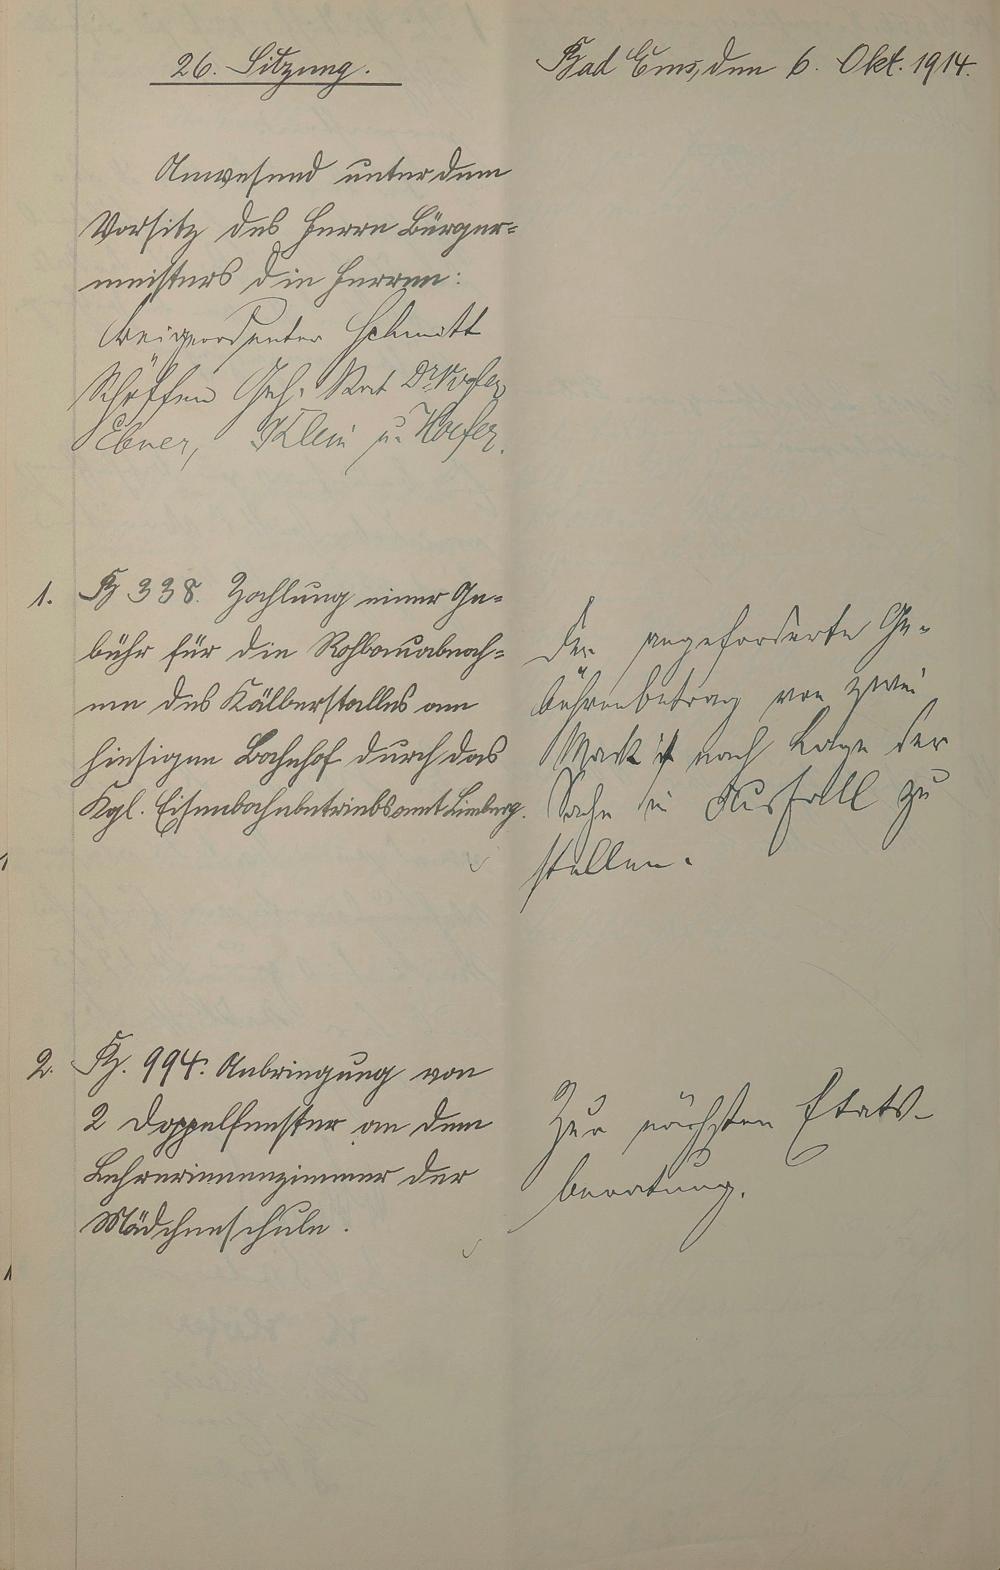 26. Sitzung.
Bad Ems, den 6. Okt. 1914.
Anwesend unter dem
Vorsitz des Herrn Bürger=
meisters die Herren:
Beigeordneter Schmitt
Schöffen Geh. Rat Dr. Vogler
Ebner, Klein u. Hoefer.
1. 338. Zahlung einer Ge=
bühr für die Rohbauabnah=
me des Kälberstalles am
hiesigen Bahnhof durch das
Kgl. Eisenbahnbetriebsamt Limburg.
Der angeforderte Ge-
bührenbetrag von zwei
Mark ist nach Lage der
Sache in Ausfall zu
stellen.
2. 994. Anbringung von
2 Doppelfenster an dem
Lehrerinnenzimmer der
Mädchenschule.
Zur nächsten Etats-
beratung.